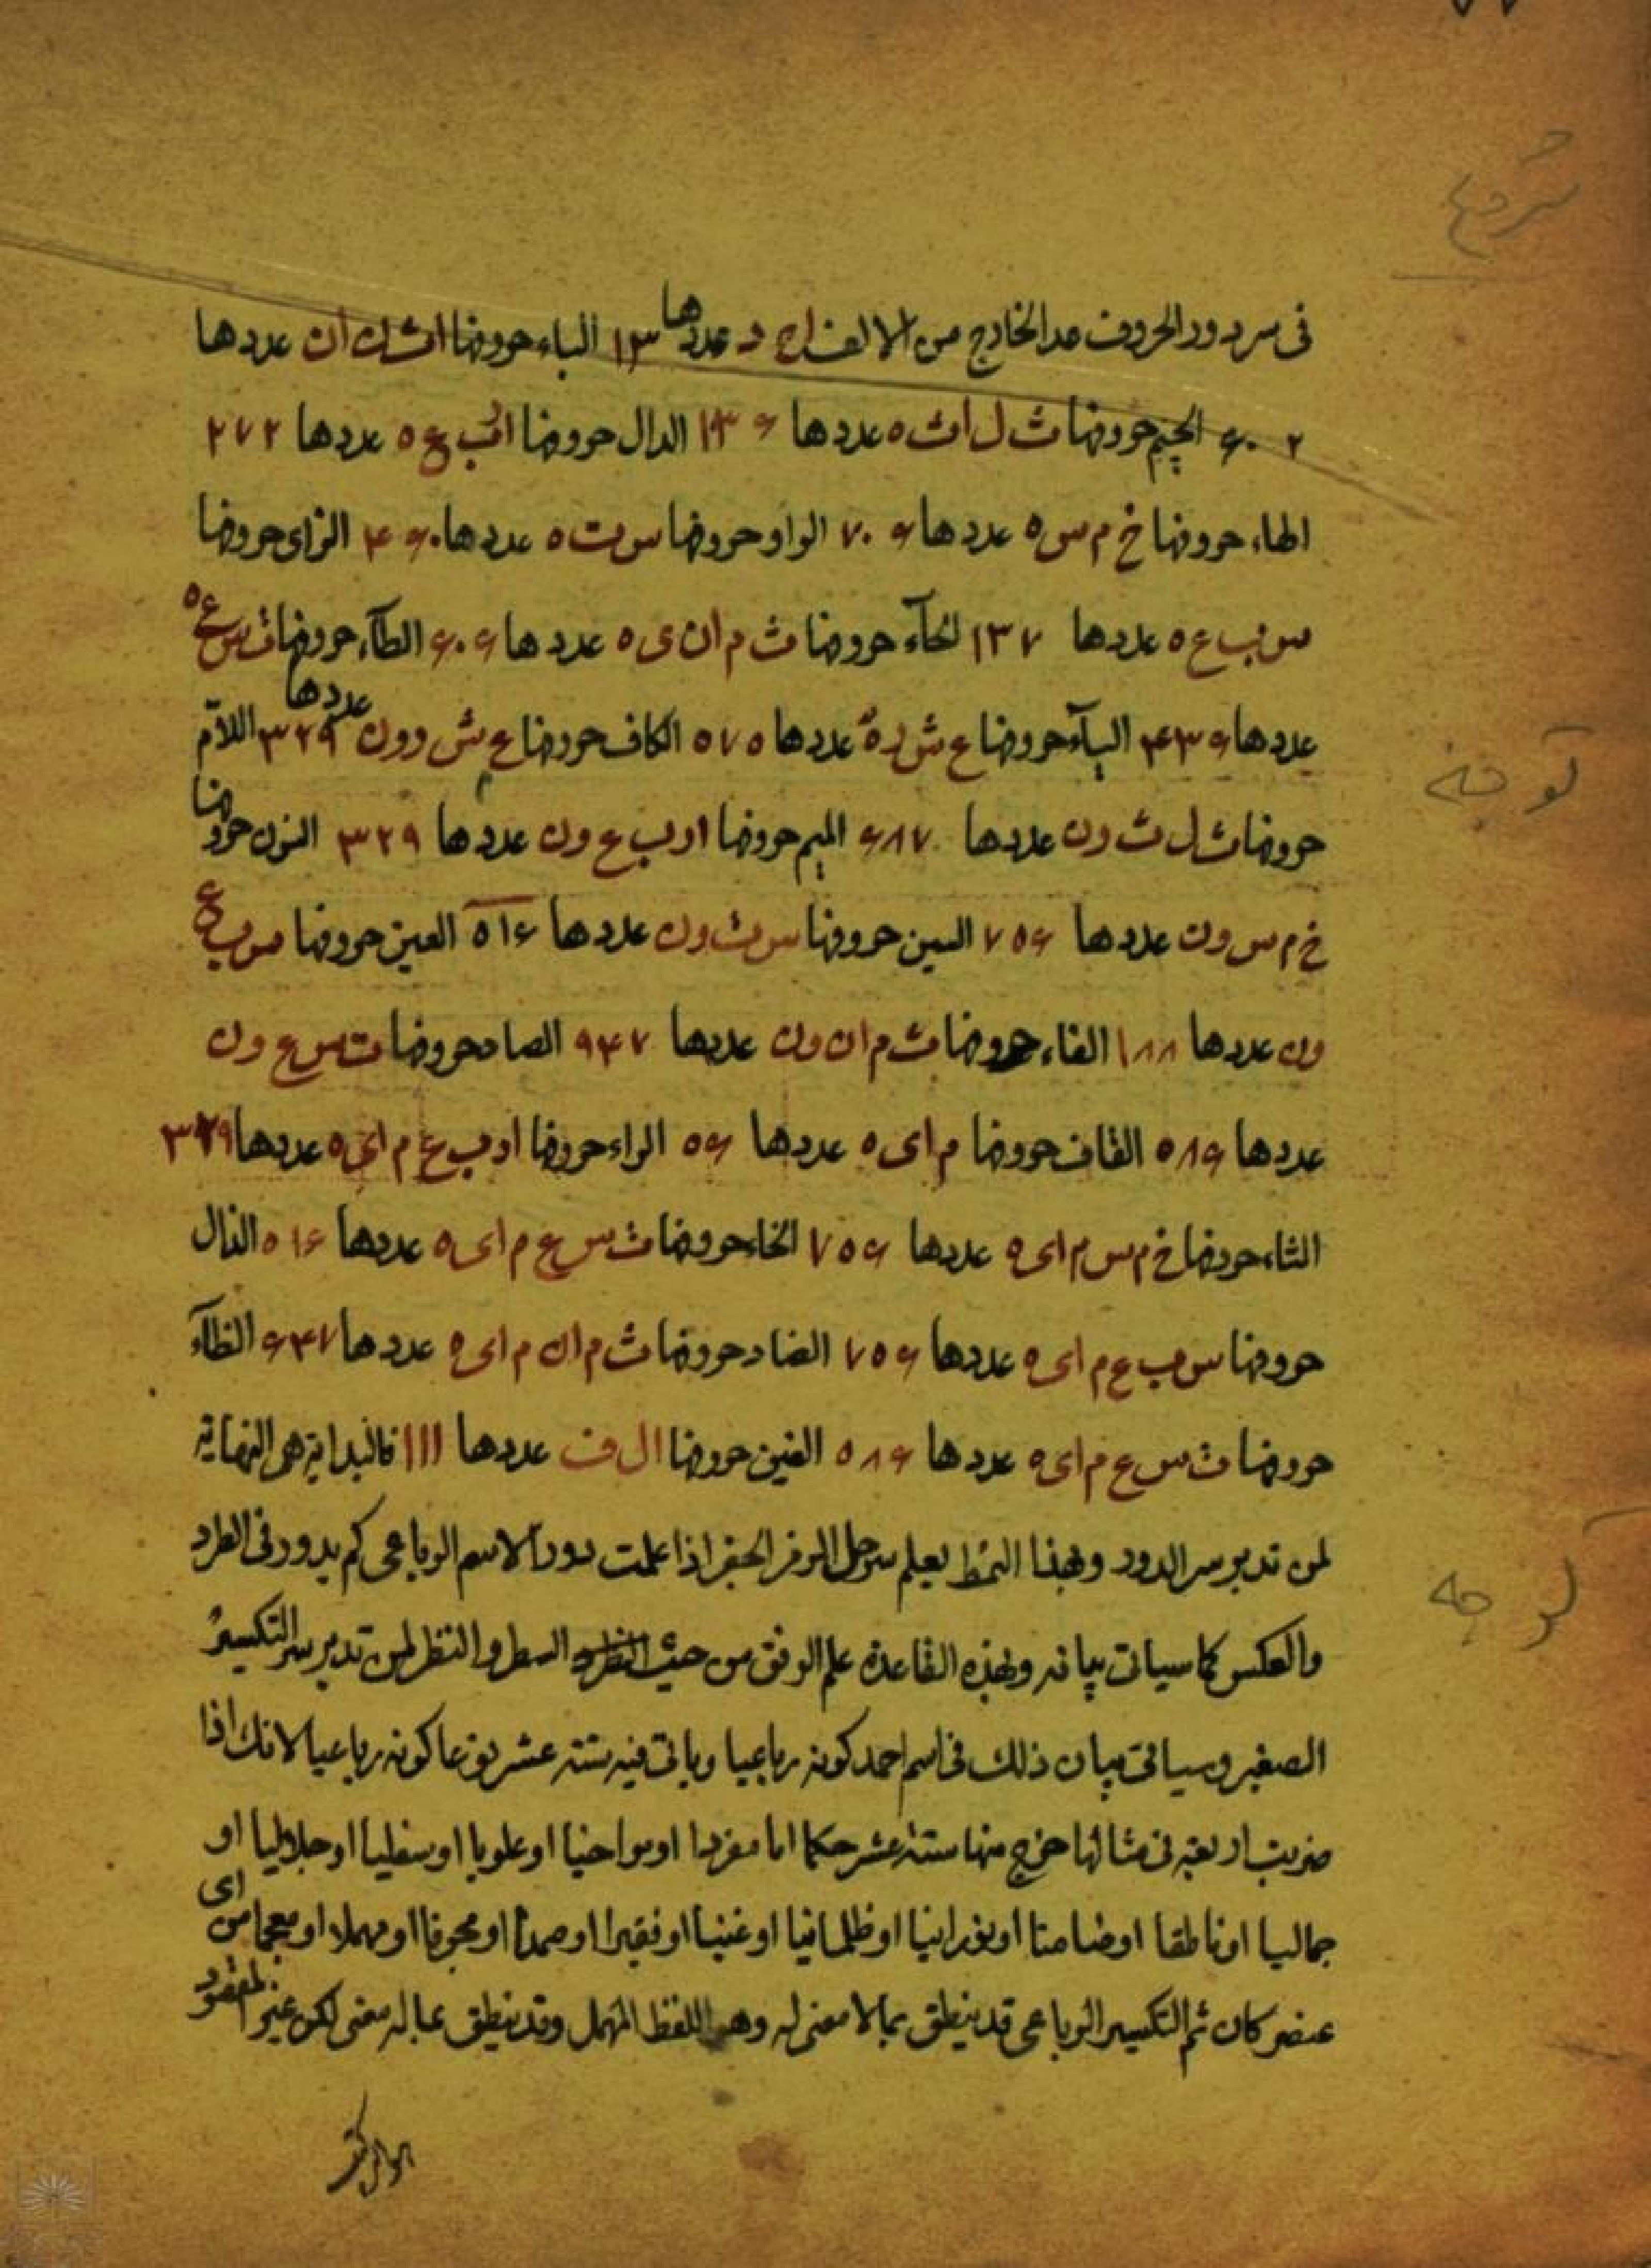 شروع
فی سر دور الحروف عدد الخارج من الالف ا ح د عددها ١٣ الباء حروفها اث ن ان عددها
٦٠٢ الجیم حروفها ث ل اث ه عددها ١٣٦ الدال حروفها ا ر ب ع ه عددها ٢٧٢
الهاء حروفها خ م س ه عددها ٧٠٦ الواو حروفها س ت ه عددها ٤٦٠ الزای حروفها
س ب ع ه عددها ١٣٧ الحآء حروفها ث م ان ی ه عددها ٦٠٦ الطآء حروفها ت س ع ه
عددها ٤٣٦ الیآء حروفها ع ش ر ه عددها ٥٧٥ الکاف حروفها ع ش ر ون عددها ٣٢٩ اللام
توجه
حروفها ث ل ث ون عددها ٦٨٧ المیم حروفها ا ر ب ع ون عددها ٣٢٩ النون حروفها
خ م س ون عددها ٧٥٦ السین حروفها س ت ون عددها ٥١٦ العین حروفها س ب ع
ون عددها ١٨٨ الفاء حروفها ث م ان ون عددها ٩٤٧ الصاد حروفها ت س ع ون
عددها ٥٨٦ القاف حروفها م ای ه عددها ٥٦ الراء حروفها ا ر ب ع م ای ه عددها ٣٢٩
الثاء حروفها خ م س م ای ه عددها ٧٥٦ الخاء حروفها ث س ع م ای ه عددها ٥١٦ الذال
حروفها س ب ع م ای ه عددها ٧٥٦ الضاد حروفها ث م ان م ای ه عددها ٦٤٧ الظآء
حروفها ت س ع م ای ه عددها ٥٨٦ الغین حروفها ال ف عددها ١١١ فالبدایة هی النهایة
لمن تدبر سر الدور وبهذا النمط یعلم سر حل الرمز الجفر اذا علمت دور الاسم الرباعی کم یدور فی الطرد
توجه
والعکس کما سیاتی بیانه وبهذه القاعدة علم الوفق من حیث السطر والنظر لمن تدبر سر التکسیر
الصغیر وسیاتی بیان ذلک فی اسم احمد کونه رباعیا ویاتی فیه ستة عشر نوعا کونه رباعیا لانک اذا
ضربت اربعة فی مثالها خرج منها ستة عشر حکما اما مفردا او مواخیا او علویا او سفلیا او جلالیا او
جمالیا او ناطقا او ضامتا او نورانیا او ظلمانیا او غنیا او فقیرا او صمدا او مجوفا او مهملا او معجما من ای
عنصر کان ثم التکسیر الرباعی قد ینطق بما لا معنی له وهو اللفظ المهمل وقد ینطق بما له معنی لکن غیر المقصود